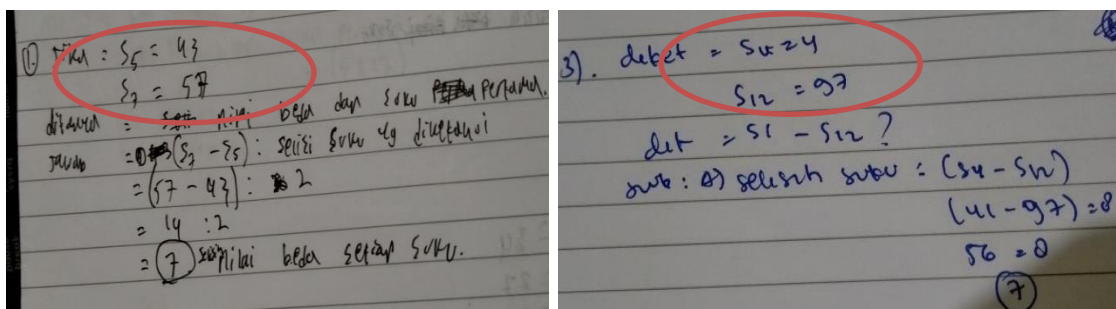 ① Dikd : S5 = 43
S7 = 57
ditanya = nilai beda dan suku pertama.
Jawab = (S7 - S5) : selisi suku yg diketahui
= (57 - 43) : 2
= 14 : 2
= 7 nilai beda setiap suku.
3). diket = S4 = 4
S12 = 97
dit = S1 - S12 ?
jwb : a) selisih suku = (S4 - S12)
(41 - 97) = 8
56 = 8
7